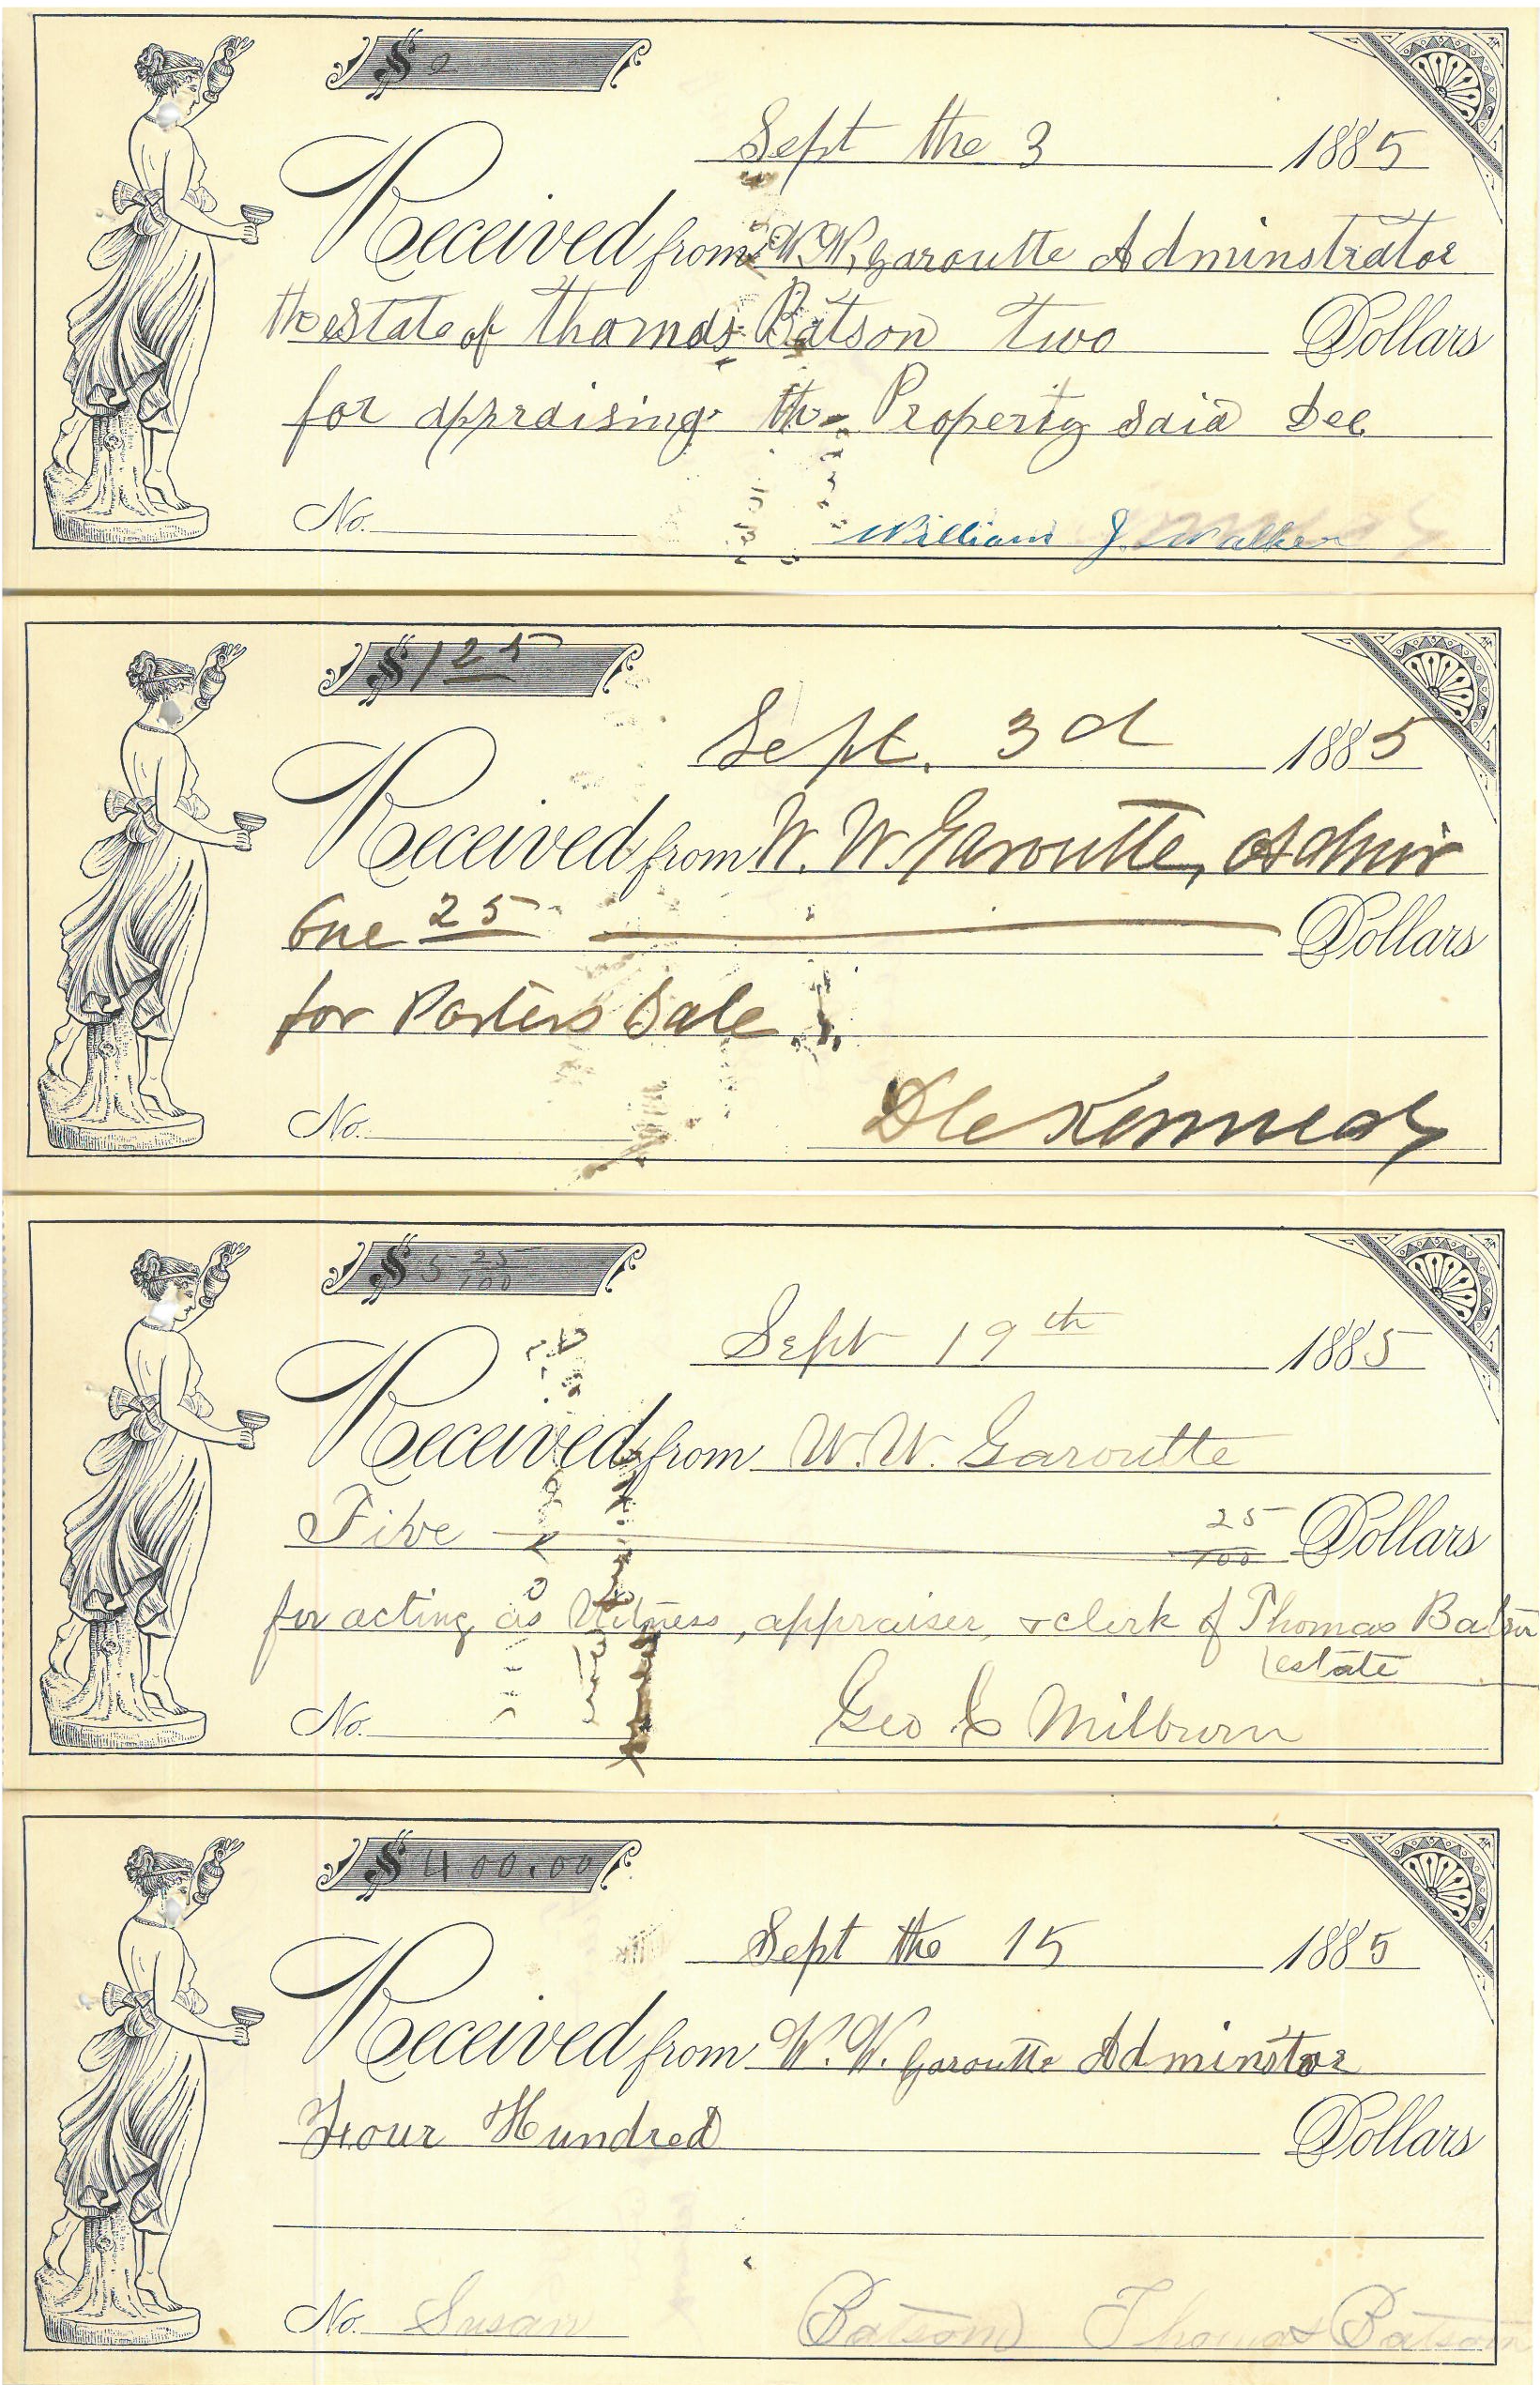 $ 2
Sept the 3 1885
Received from W.W. Garoutte Adminstrator
the estate of Thomas Batson two Dollars
for appraising the Property said Dec
No.
William J. Walker
$ 1 25
Sept. 3d 1885
Received from W. W. Garoutte, Admir
One 25 Dollars
for Posters Sale
No.
Kennedy
$ 5 25/100
Sept 19th 1885
Received from W. W. Garoutte
Five 25/100 Dollars
for acting as Witness, appraiser, & clerk of Thomas Batson
estate
No.
Geo C Milburn
$ 400.00
Sept the 15 1885
Received from W. W. Garoutte Adminstor
Four Hundred Dollars
No. Susan Batson Thomas Batson